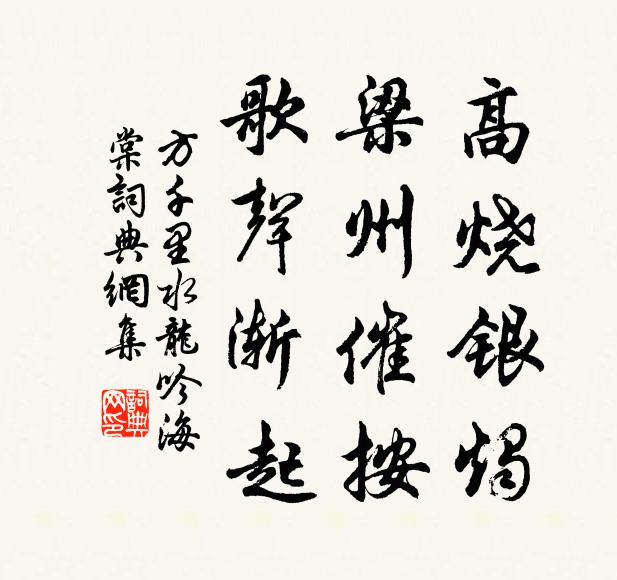 高烧银烛
梁州催按
歌声渐起
方千里水龍吟海
棠詞典網集
詞典网印